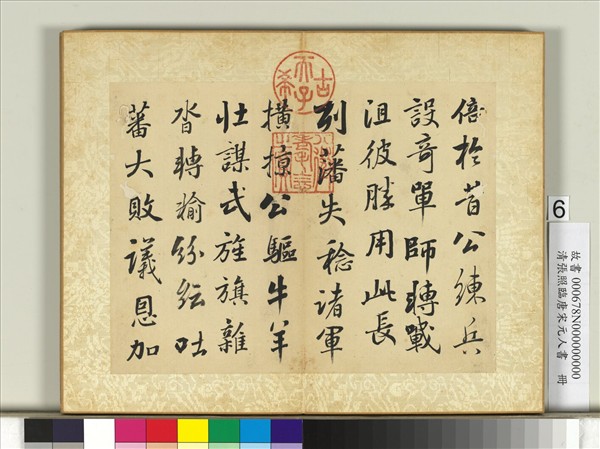 倍於昔公練兵
設奇單師轉戰
沮彼勝用此長
列藩失稔諸軍
擄掠公驅牛羊
壯謀武旌旗雜
沓轉輸紛紜吐
蕃大敗議恩加
古希天子
6
故書 000678N000000000
清張照臨唐宋元人書 冊